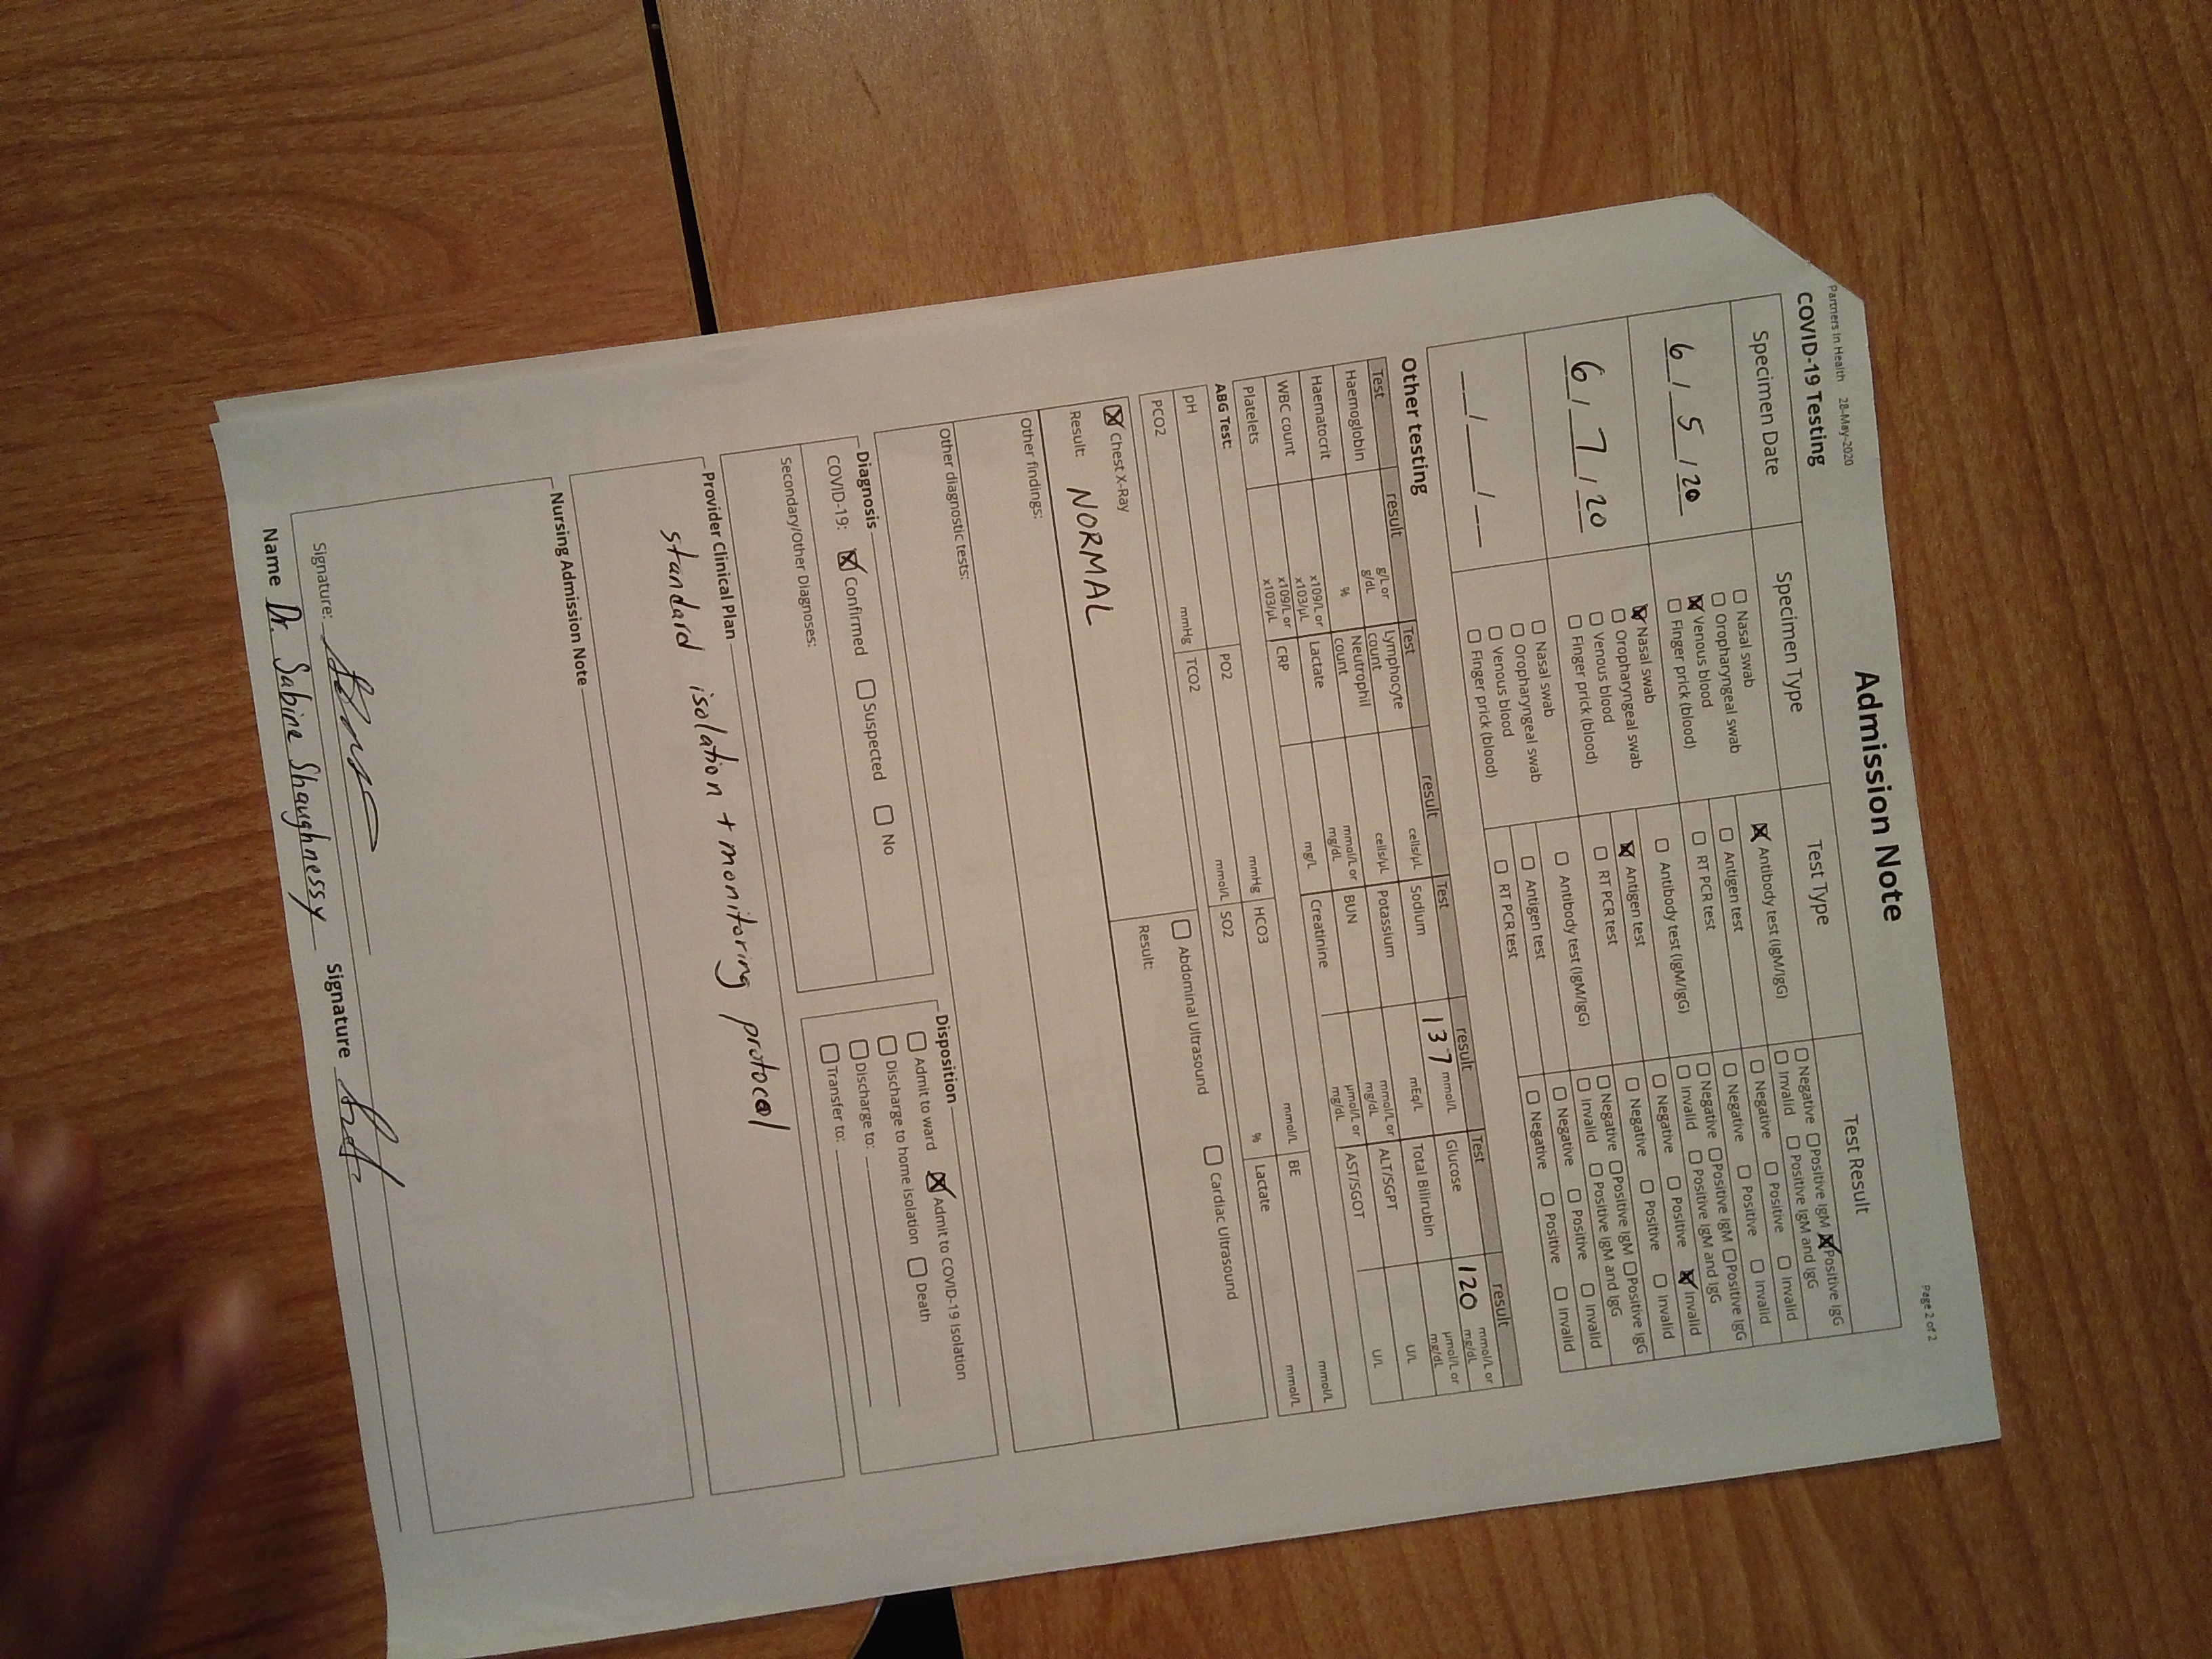 Partners In Health 28-May-2020
Page 2 of 2
Admission Note
COVID-19 Testing
Specimen Date Specimen Type Test Type Test Result
6 / 5 / 20
☐ Nasal swab
☐ Oropharyngeal swab
☒ Venous blood
☐ Finger prick (blood)
☒ Antibody test (IgM/IgG)
☐ Negative ☐ Positive IgM ☒ Positive IgG
☐ Invalid ☐ Positive IgM and IgG
☐ Antigen test ☐ Negative ☐ Positive ☐ Invalid
☐ RT PCR test ☐ Negative ☐ Positive ☐ Invalid
6 / 7 / 20
☒ Nasal swab
☐ Oropharyngeal swab
☐ Venous blood
☐ Finger prick (blood)
☐ Antibody test (IgM/IgG)
☐ Negative ☐ Positive IgM ☐ Positive IgG
☐ Invalid ☐ Positive IgM and IgG
☒ Antigen test ☐ Negative ☐ Positive ☒ Invalid
☐ RT PCR test ☐ Negative ☐ Positive ☐ Invalid
__ / __ / __
☐ Nasal swab
☐ Oropharyngeal swab
☐ Venous blood
☐ Finger prick (blood)
☐ Antibody test (IgM/IgG)
☐ Negative ☐ Positive IgM ☐ Positive IgG
☐ Invalid ☐ Positive IgM and IgG
☐ Antigen test ☐ Negative ☐ Positive ☐ Invalid
☐ RT PCR test ☐ Negative ☐ Positive ☐ Invalid
Other testing
Test result Test result Test result Test result
Haemoglobin g/L or g/dL Lymphocyte count cells/µL Sodium 137 mmol/L Glucose 120 mmol/L or mg/dL
Haematocrit % Neutrophil count cells/µL Potassium mEq/L Total Bilirubin µmol/L or mg/dL
WBC count x109/L or x103/µL Lactate mmol/L or mg/dL BUN mmol/L or mg/dL ALT/SGPT U/L
Platelets x109/L or x103/µL CRP mg/L Creatinine µmol/L or mg/dL AST/SGOT U/L
ABG Test:
pH PO2 mmHg HCO3 mmol/L BE mmol/L
PCO2 mmHg TCO2 mmol/L SO2 % Lactate mmol/L
☒ Chest X-Ray ☐ Abdominal Ultrasound ☐ Cardiac Ultrasound
Result: NORMAL Result:
Other findings:
Other diagnostic tests:
Diagnosis
COVID-19: ☒ Confirmed ☐ Suspected ☐ No
Secondary/Other Diagnoses:
Disposition
☐ Admit to ward ☒ Admit to COVID-19 Isolation
☐ Discharge to home isolation ☐ Death
☐ Discharge to:
☐ Transfer to:
Provider Clinical Plan
standard isolation + monitoring protocol
Nursing Admission Note
Signature:
Name Dr. Sabine Shaughnessy Signature